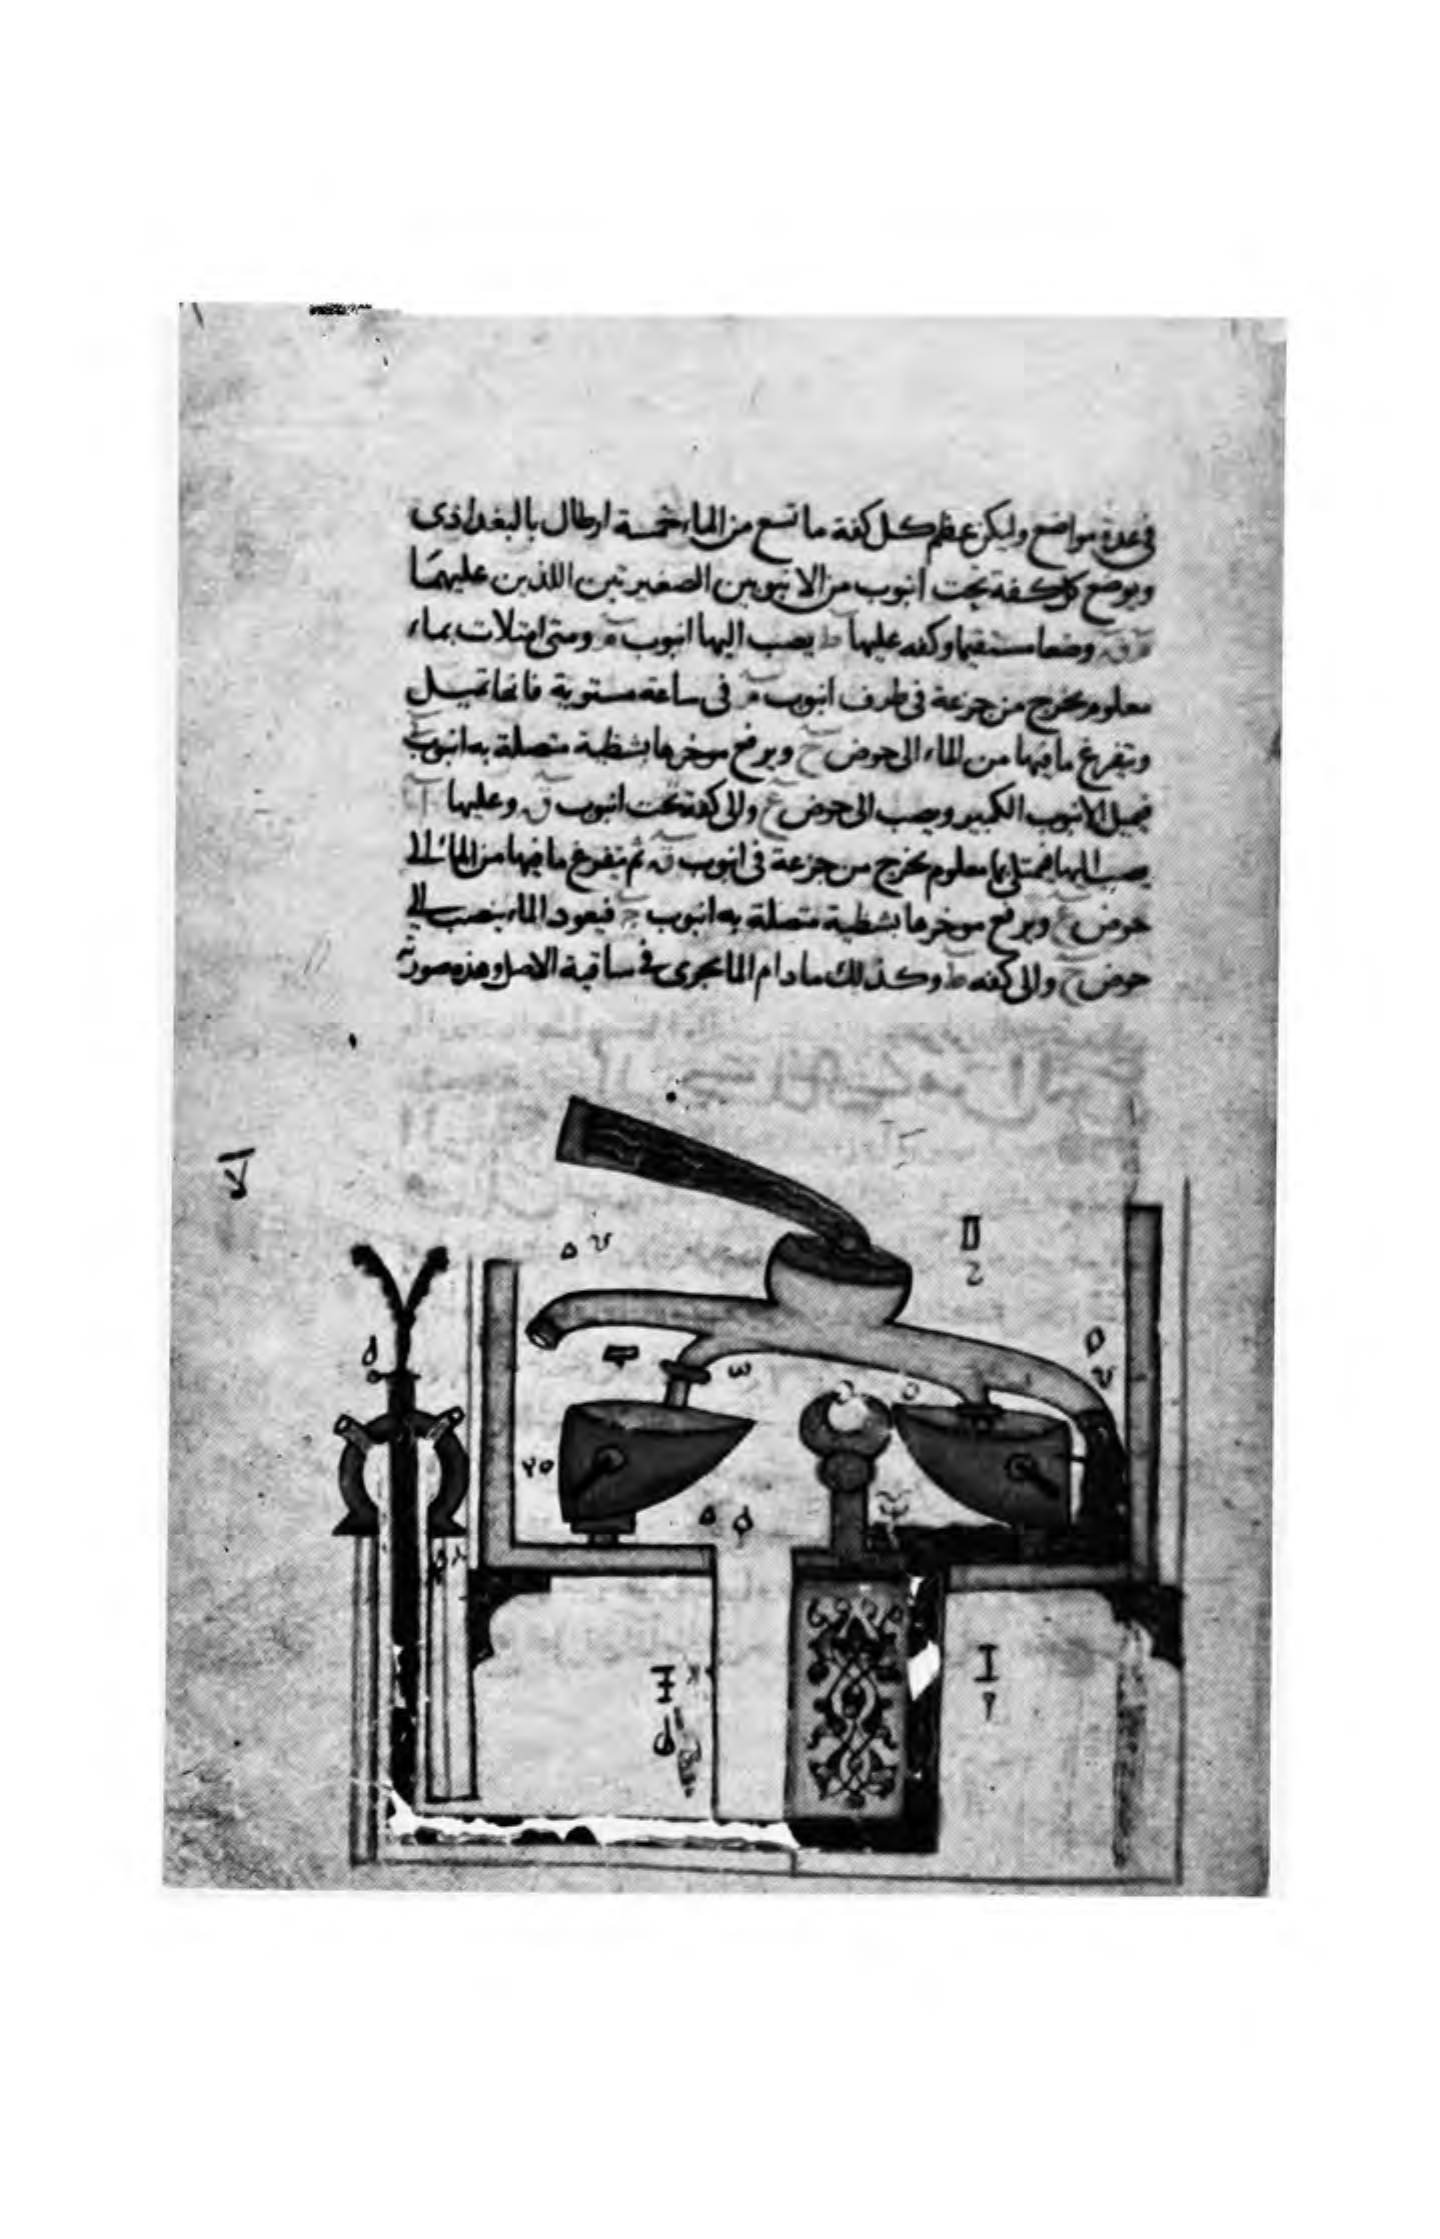 في عدة مواضع وليكن عظم كل كفة ما تسع من الماء خمسة ارطال بالبغداذى
ويوضع كل كفة تحت انبوب من الانبوبين الصغيرتين اللذين عليهما
م ق وضعا مستقيما وكفه عليها ط يصب اليها انبوب م ومتى امتلات بماء
معلوم يخرج من جزعة في طرف انبوب م في ساعة مستوية فانها تميل
ويتفرغ ما فيها من الماء الى حوض ح ويرفع موخرها بشظية متصلة به انبوب
فيميل الانبوب الكبير ويصب الى حوض ع والى كفة تحت انبوب ق وعليها
يصب اليها فتمتلى بما معلوم يخرج من جزعة في انبوب ق ثم يتفرغ ما فيها من الماء الى
حوض ع ويرفع موخرها بشظية متصلة به انبوب فيعود الماء ينصب الى
حوض ح والى كفه ط وكذلك ما دام الما يجرى في ساقية الاصل وهذه صورته